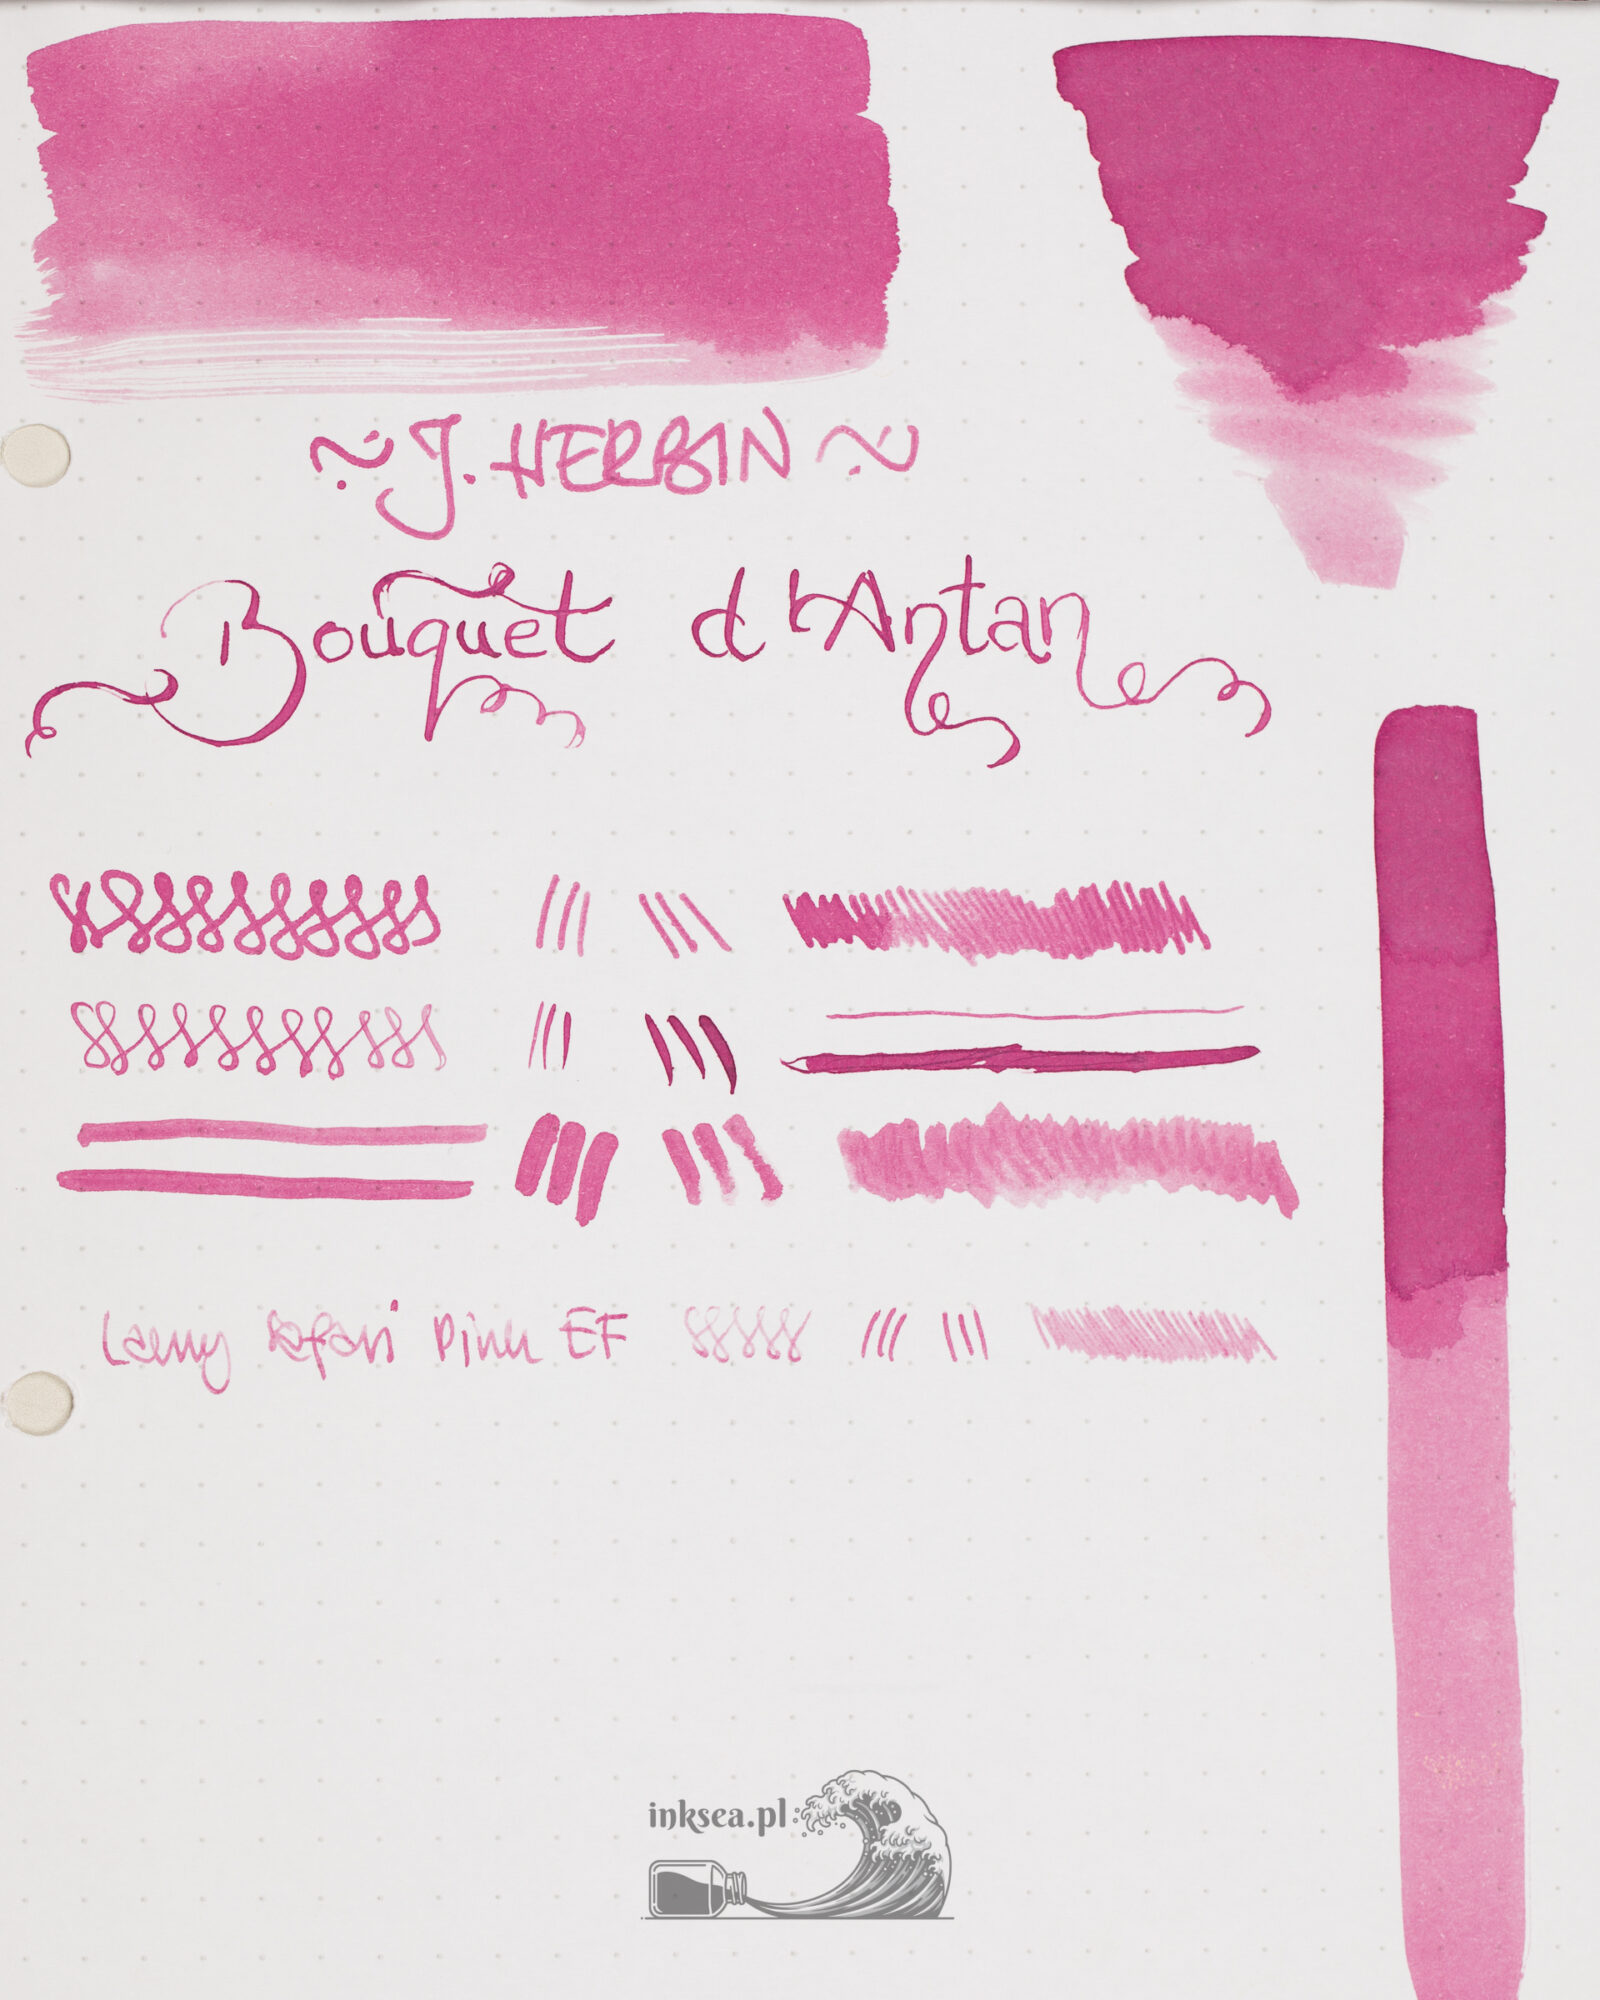 ~ J. HERBIN ~
Bouquet d'Antan
Lamy Safari Pink EF
inksea.pl